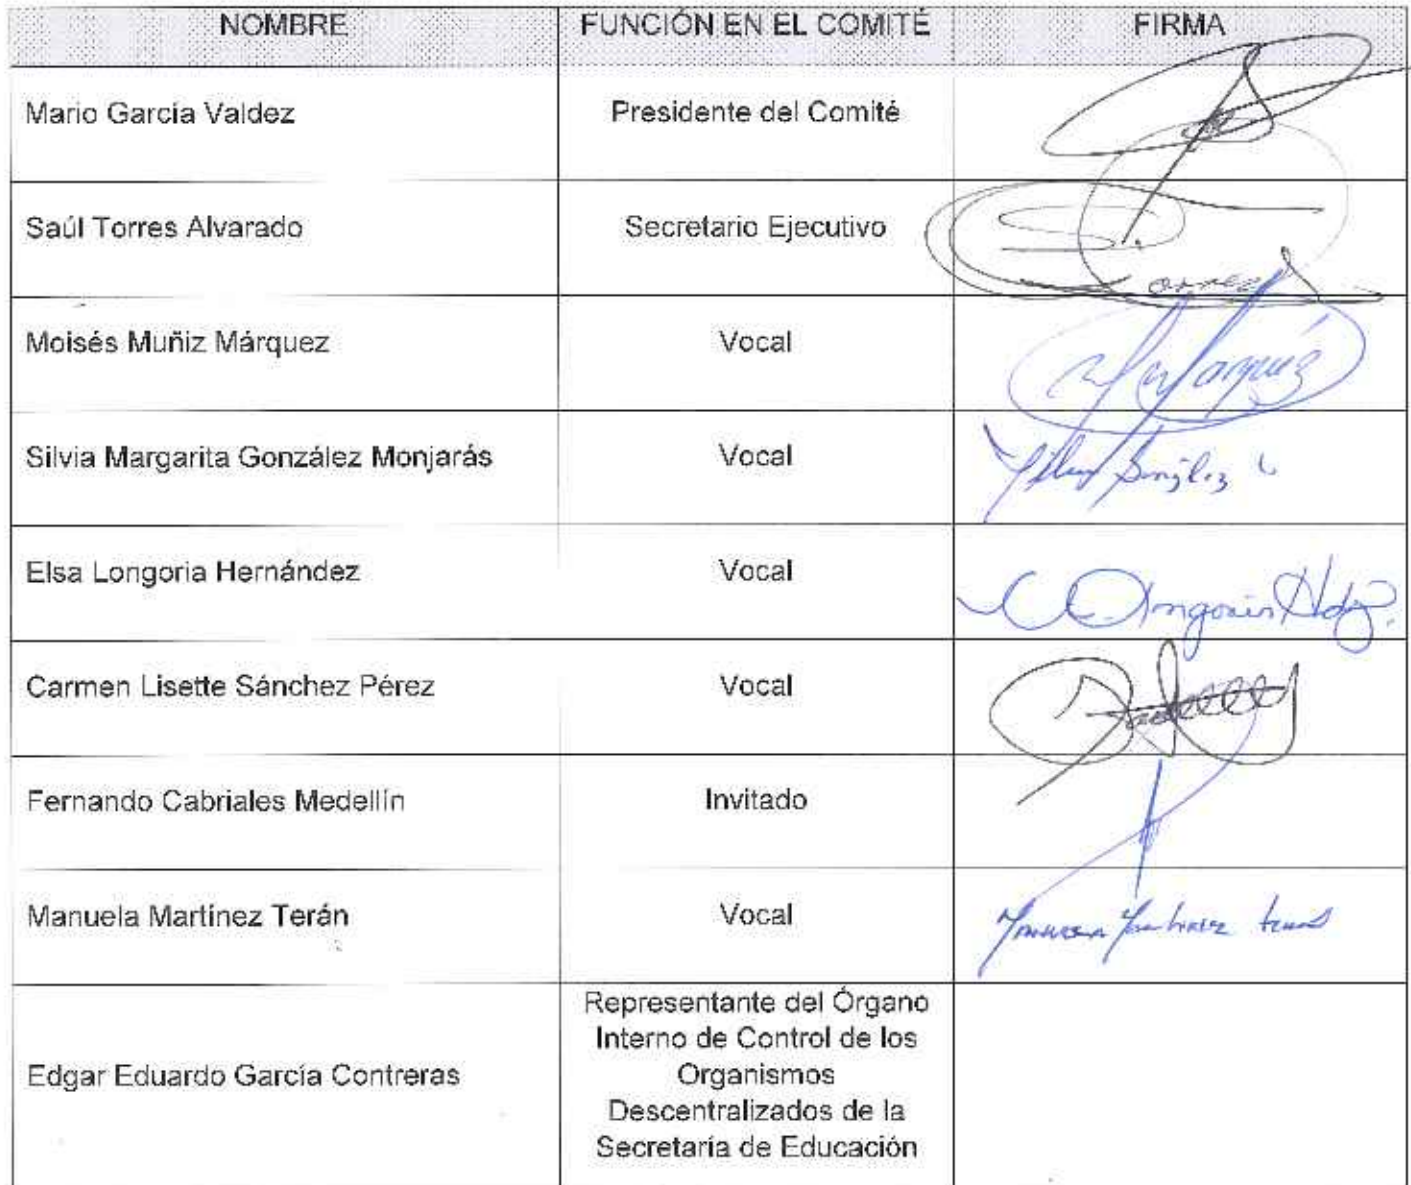 NOMBRE FUNCIÓN EN EL COMITÉ FIRMA
Mario García Valdez Presidente del Comité
Saúl Torres Alvarado Secretario Ejecutivo
Moisés Muñiz Márquez Vocal
Silvia Margarita González Monjarás Vocal
Elsa Longoria Hernández Vocal
Carmen Lisette Sánchez Pérez Vocal
Fernando Cabriales Medellín Invitado
Manuela Martínez Terán Vocal
Representante del Órgano
Interno de Control de los
Edgar Eduardo García Contreras Organismos
Descentralizados de la
Secretaría de Educación